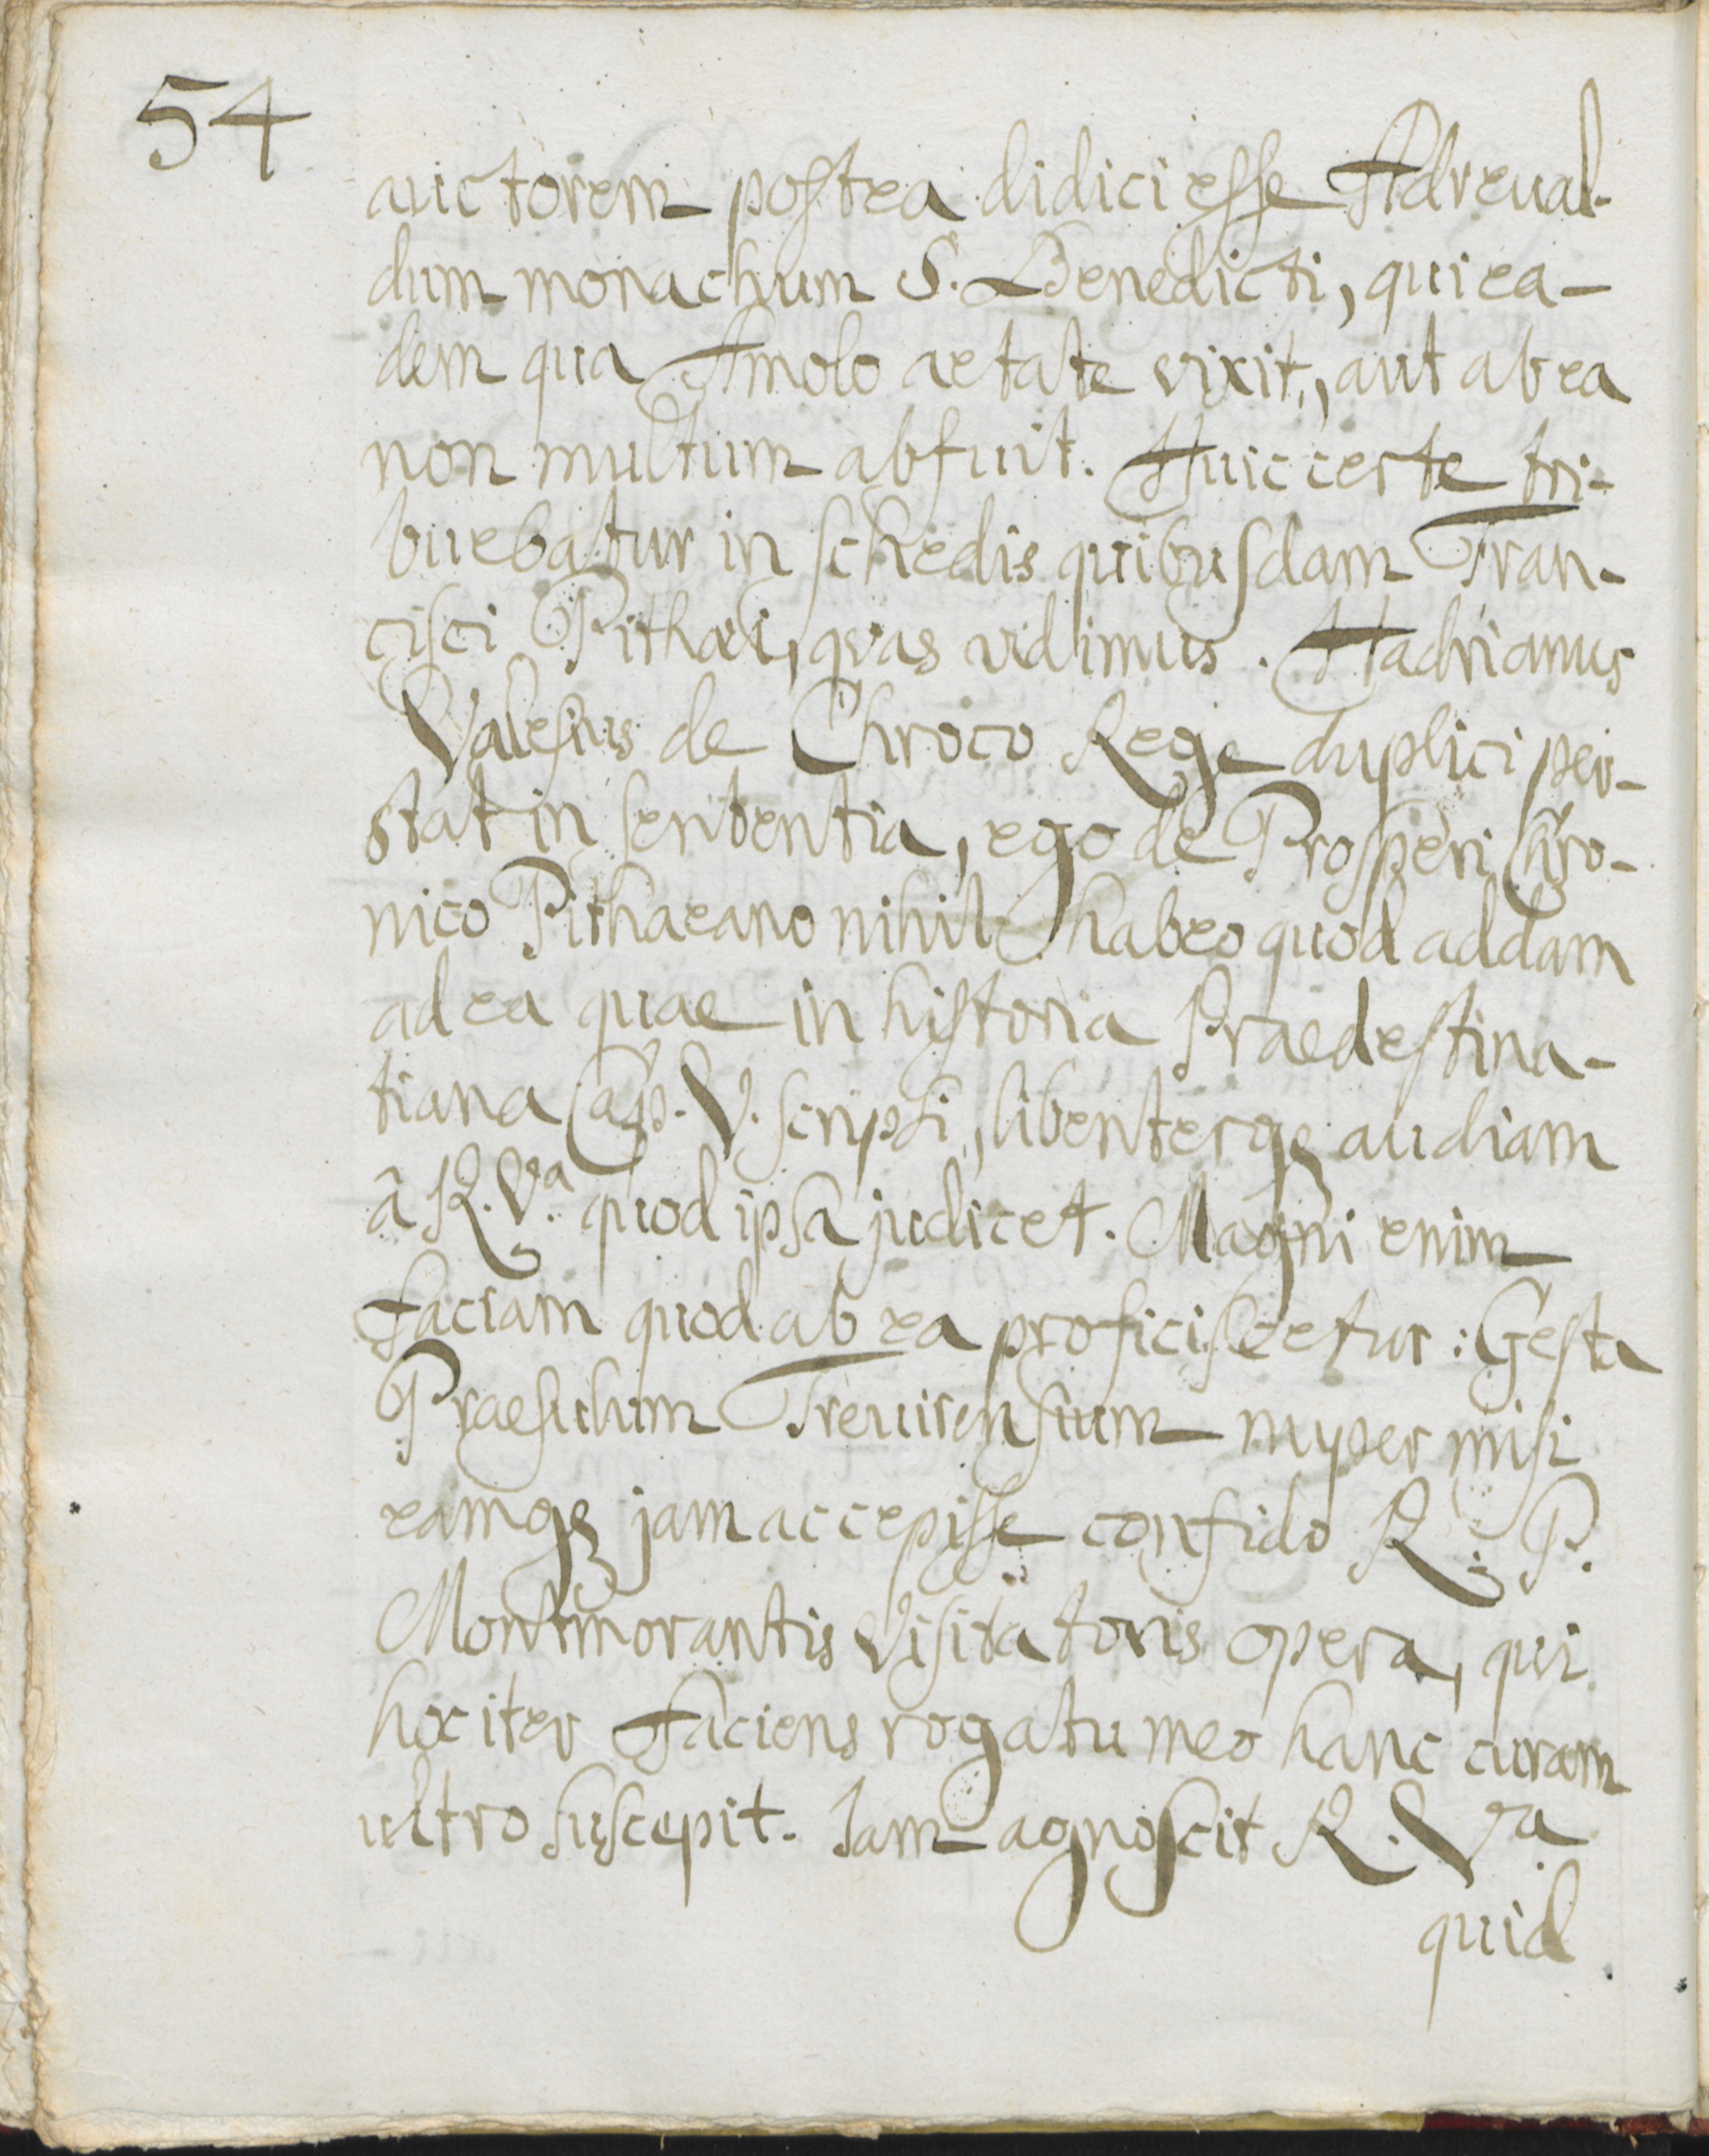 54
auctorem postea didici esse Adreval-
dum monachum S. Benedicti, qui ea-
dem qua Amolo aetate vixit, aut ab ea
non multum abfuit. Huic certe tri-
buebatur in schedis quibusdam Fran-
cisci Pithaei, quas vidimus. Hadrianus
Valesius de Chroco Rege duplici per-
stat in sententia, ego de Prosperi Chro-
nico Pithaeano nihil habeo quod addam
ad ea quae in historia Praedestina-
tiana Cap. V. scripsi, libenterq; audiam
â R. Vª. quod ipsa judicet. Magni enim
faciam quod ab ea proficiscetur: Gesta
Praesulum Treuirensium nuper misi
eamq; jam accepisse confido R. P.
Montmorantis Visitatoris opera, qui
hoc iter faciens rogatu meo hanc curam
ultro suscepit. Iam agnoscit R. Vra
quid